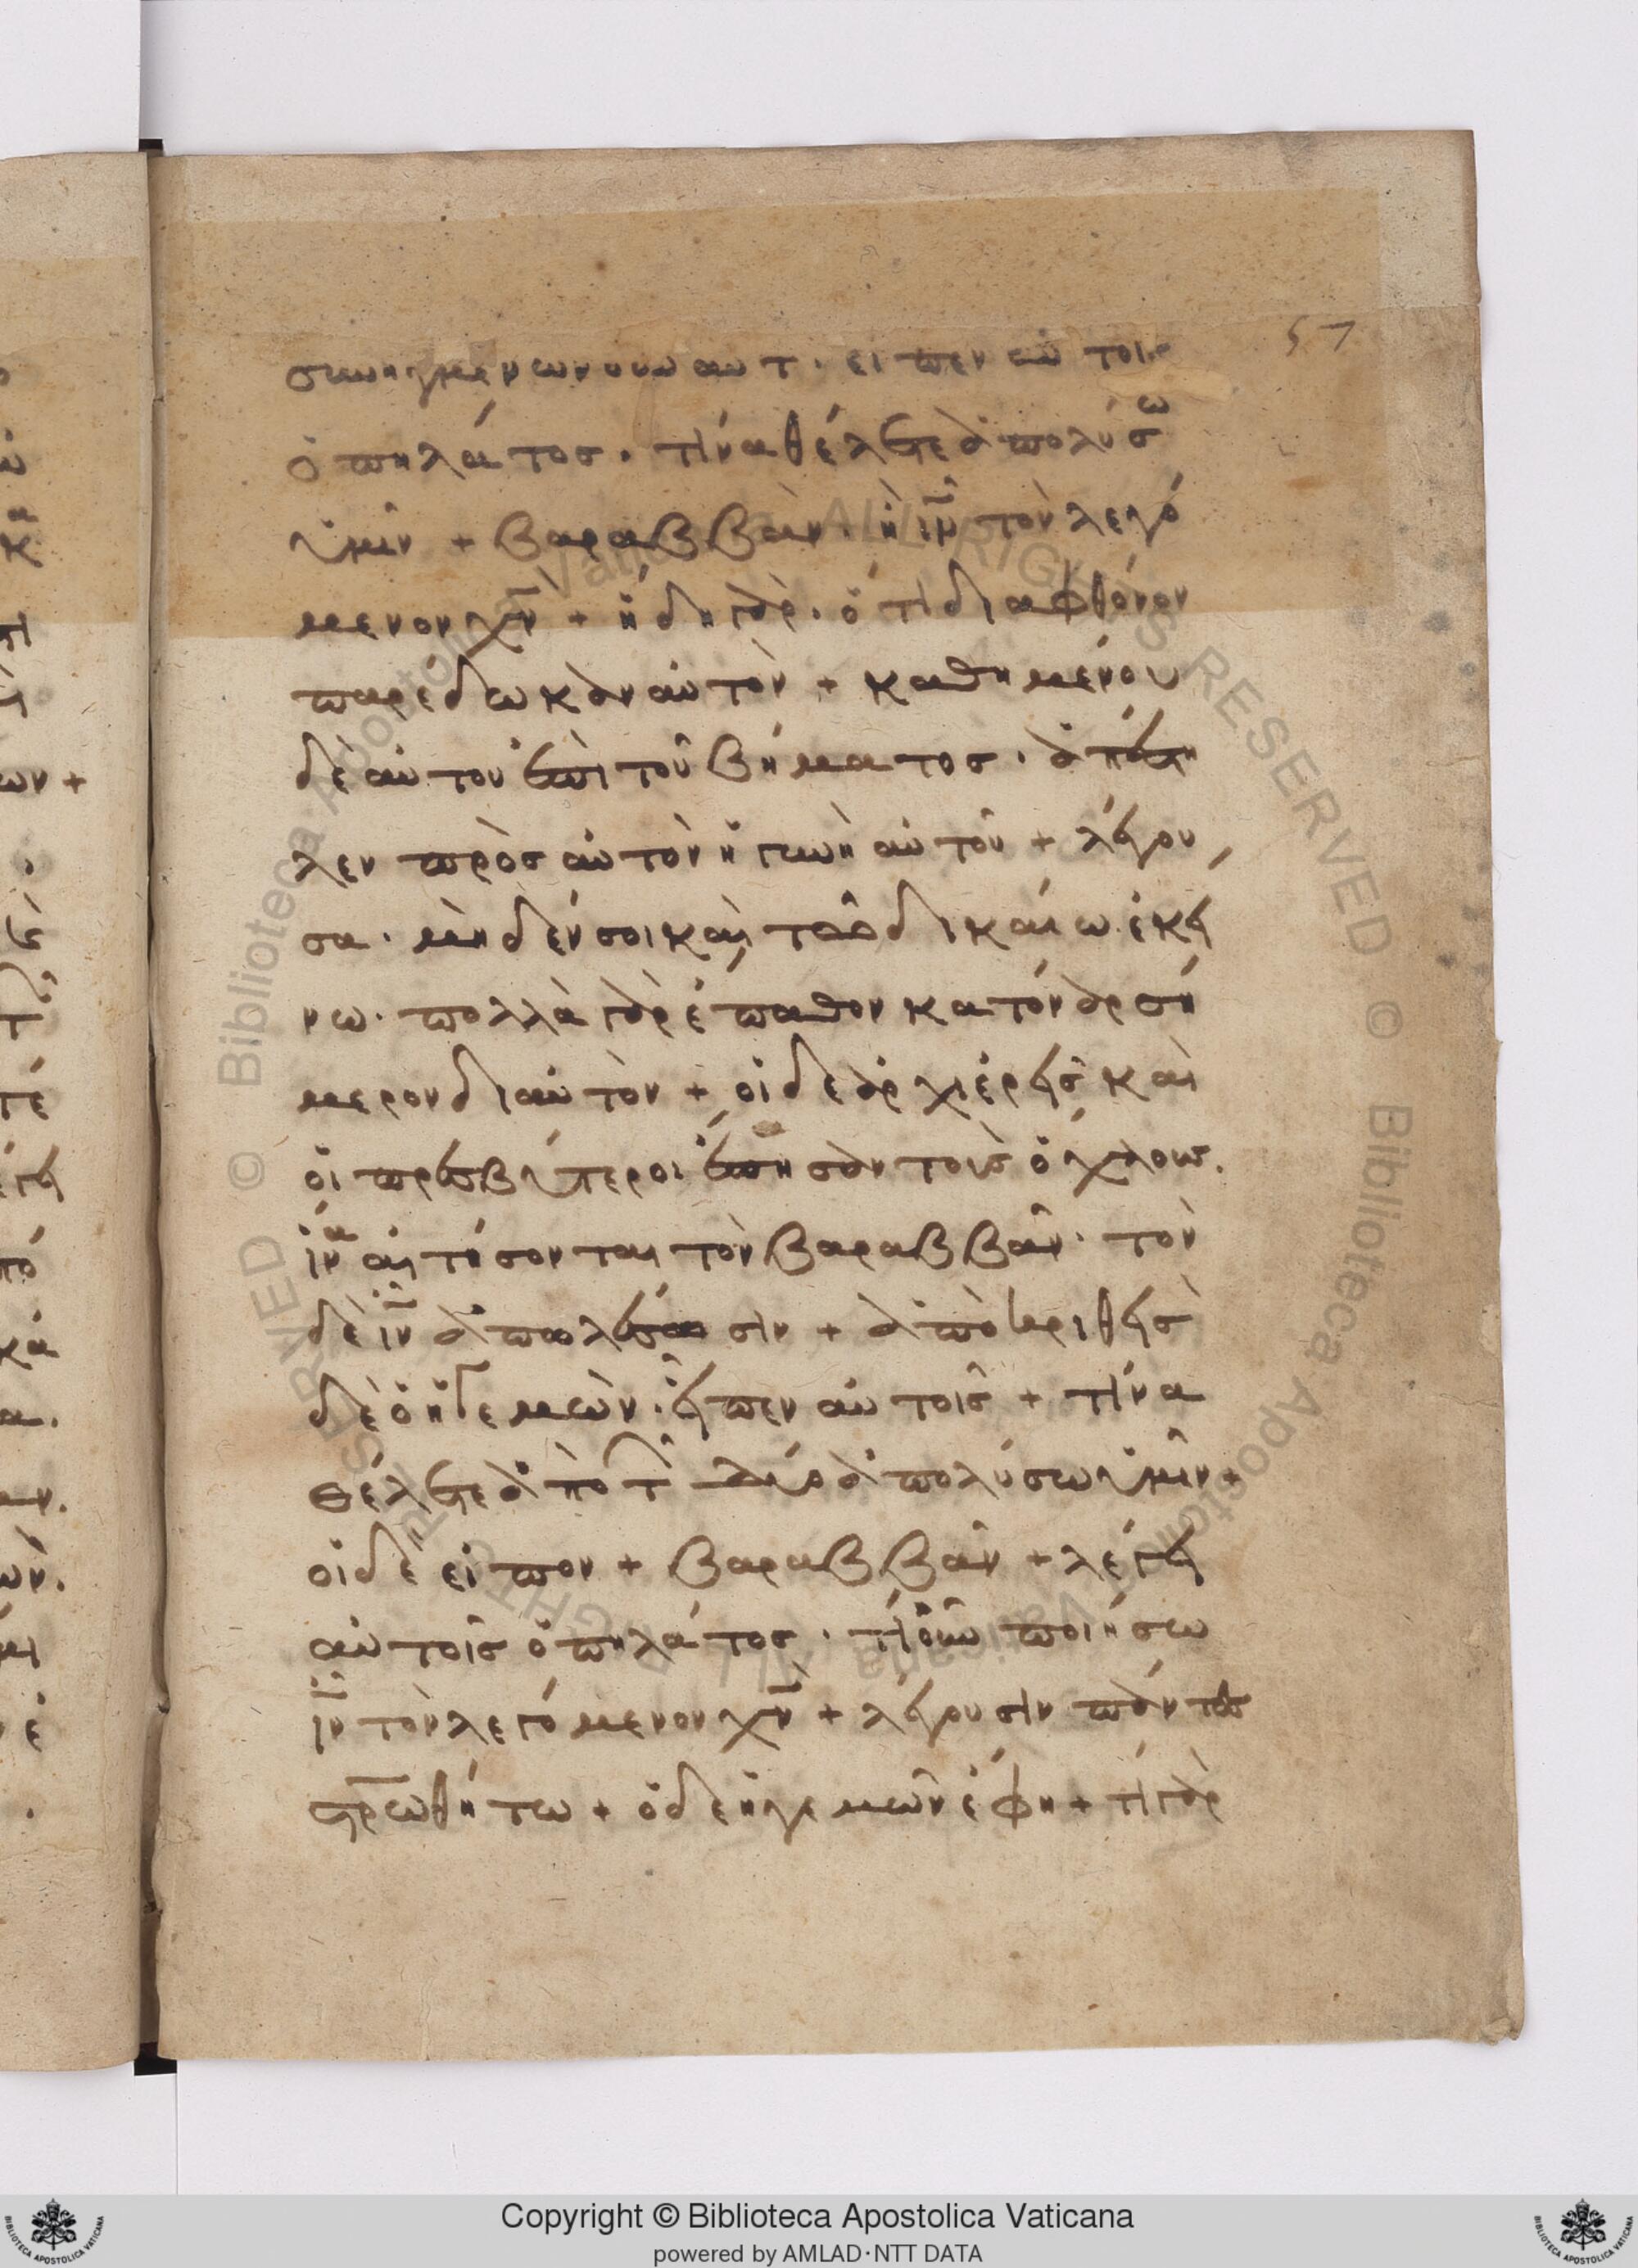 57
συνηγμένων οὖν αὐτ · εἶπεν αὐτοῖς
ὁ πηλάτος · τίνα θέλετε ἀπολύσω
ὑμῖν + βαραββὰν · ἢ ιν̅ τὸν λεγό
μενον χν̅ + ἤδη γὰρ · ὅτι δια φθόνον
παρέδωκαν αὐτὸν + καθημένου
δὲ αὐτοῦ ἐπὶ τοῦ βήματος · ἀπέστη
λεν πρὸς αὐτὸν ἡ γυνὴ αὐτοῦ + λέγου
σα · μηδέν σοι καὶ τῶ δικαίω ἐκεί
νω · πολλὰ γὰρ ἔπαθον κατόναρ σή
μερον δι αὐτόν + οἱ δε ἀρχιερεῖς καὶ
οἱ πρεσβύτεροι ἔπησαν τοῖς ὄχλοις.
ἵνα αἰτήσονται τὸν βαραββᾶν · τὸν
δὲ ιν̅ ἀπωλέσωσιν + ἀποκριθεὶς
δὲ ὁ ἡγεμὼν · εἶπεν αὐτοῖς + τίνα
θέλετε ἀπὸ τ δύο ἀπολύσω ὑμῖν +
οἱ δὲ εἶπον + βαραββᾶν + λέγει
αὐτοῖς ὁ πηλάτος · τί οὖν ποιήσω
ιν̅ τὸν λεγόμενον χν̅ + λέγουσιν πάντες
στρ̅ωθήτω + ὁ δε ἡγεμὼν ἔφη + τί γὰρ
Copyright © Biblioteca Apostolica Vaticana
powered by AMLAD·NTT DATA